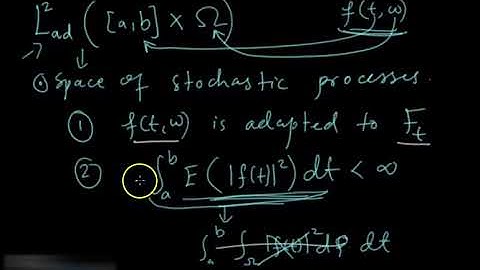 L²_ad ( [a,b] × Ω ) f(t,ω)
Space of stochastic processes.
① f(t,ω) is adapted to F_t
② ∫_a^b E ( |f(t)|² ) dt < ∞
∫_a^b ∫_Ω |f(t)|² dP dt